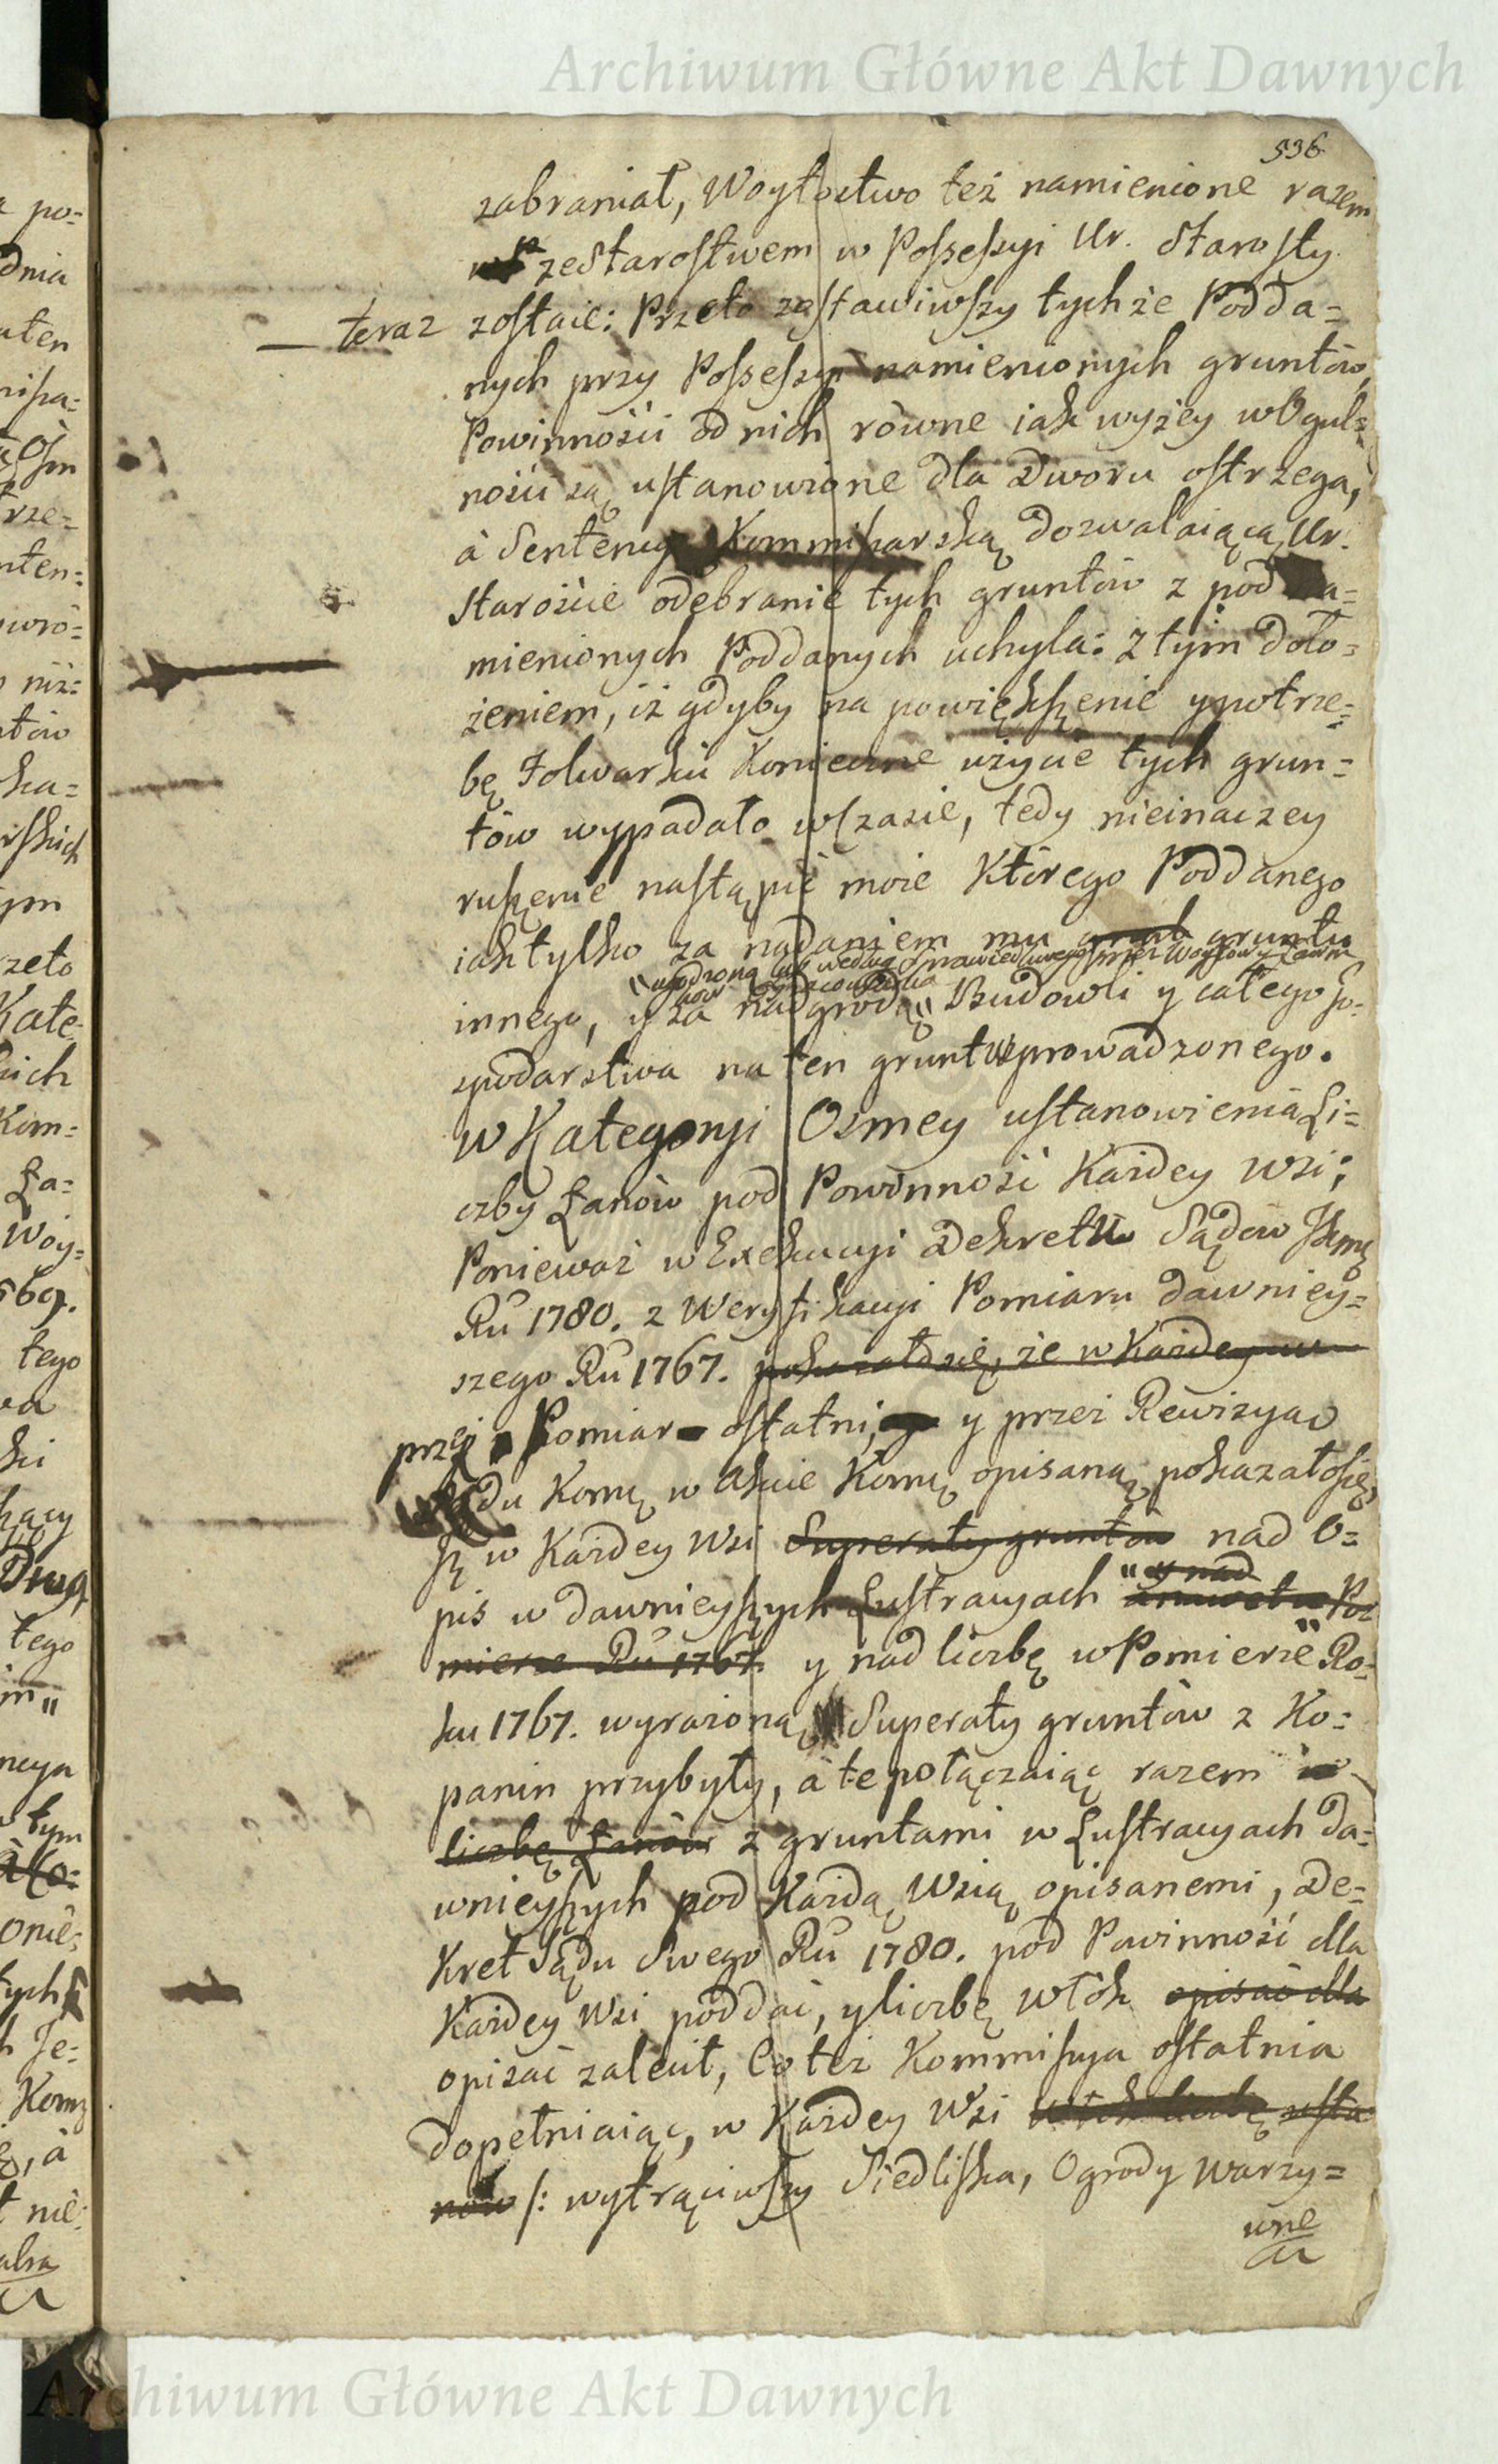 Archiwum Główne Akt Dawnych
536
zabraniał, Woytostwo też namienione razem
ze Starostwem w Possessyi Ur. Starosty
teraz zostaie: Przeto zostawiwszy tychże Podda=
nych przy Possessyi namienionych gruntów,
Powinności od nich równe iak wyżey w Ogul=
ności są ustanowione dla Dworu ostrzega,
à Sentencyą Kommissarską dozwalaiącą Ur.
Starościе odebranie tych gruntów z pod na=
mienionych Poddanych uchyla: z tym doło=
żeniem, iż gdyby na powiększenie y potrze=
bę Folwarku Konieczne użycie tych grun=
tów wypadało w czasie, tedy nieinaczey
ruszenie nastąpić może Którego Poddanego
iak tylko za nadaniem mu grunt gruntu
ugodzoną lub według sprawiedliwego przez Woytów y Ławni
ków oszacowania
innego, y za nadgrodą Budowli y całego go=
spodarstwa na ten grunt wprowadzonego.
w Kategoryi Osmey ustanowienia Li=
czby Łanów pod Powinność Każdey Wsi;
Ponieważ w Exekucyi Dekretu Sądów JKmę
Ru 1780. z Weryfikacyi Pomiaru dawniey=
szego Ru 1767. pokazało się, że w Każdey w
przez Pomiar ostatni, y przez Rewizyą
Sądu Komę w Akcie Komę opisaną pokazało się,
Jż w Każdey Wsi Superaty gruntów nad O=
pis w dawnieyszych Lustracyach y nad Po
mierze Ru 1767. y nad liczbę w Pomierze Ro=
ku 1767. wyrażoną Superaty gruntów z Ko=
panin przybyły, à te połączaiąc razem w
liczbę Łanów z gruntami w Lustracyach da=
wnieyszych pod Każdą Wsią opisanemi, De=
kret Sądu Swego Ru 1780. pod Powinność dla
Każdey Wsi poddać, y liczbę włók opisać dla
opisać zalecił, Co też Kommissya ostatnia
dopełniaiąc, w Każdey Wsi włók liczbę usta
now /: wytrąciwszy Siedliska, Ogrody Warzy=
wne
Archiwum Główne Akt Dawnych